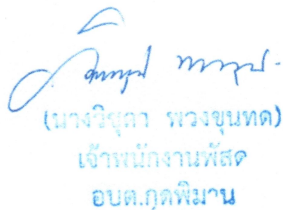 (นางวิชุดา พวงขุนทด)
เจ้าพนักงานพัสดุ
อบต.กุดพิมาน